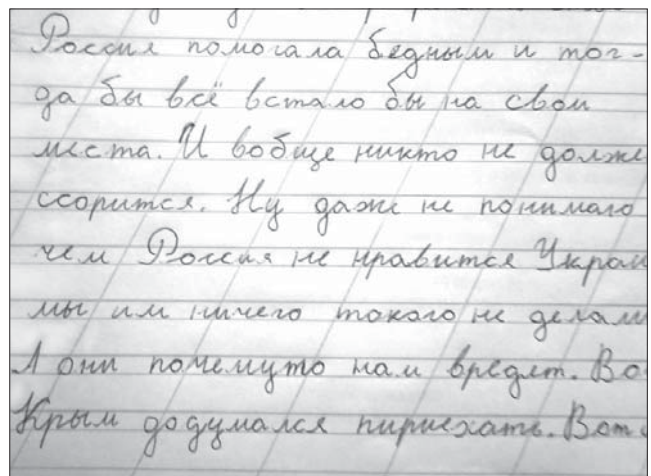 Россия помогала бедным и тог-
да бы всё встало бы на свои
места. И вобще никто не долже
ссорится. Ну даже не понимаю
чем Россия не нравится Украи
мы им ничего такого не делали
А они почемуто нам вредят. Во
Крым додумался пириехать. Вот